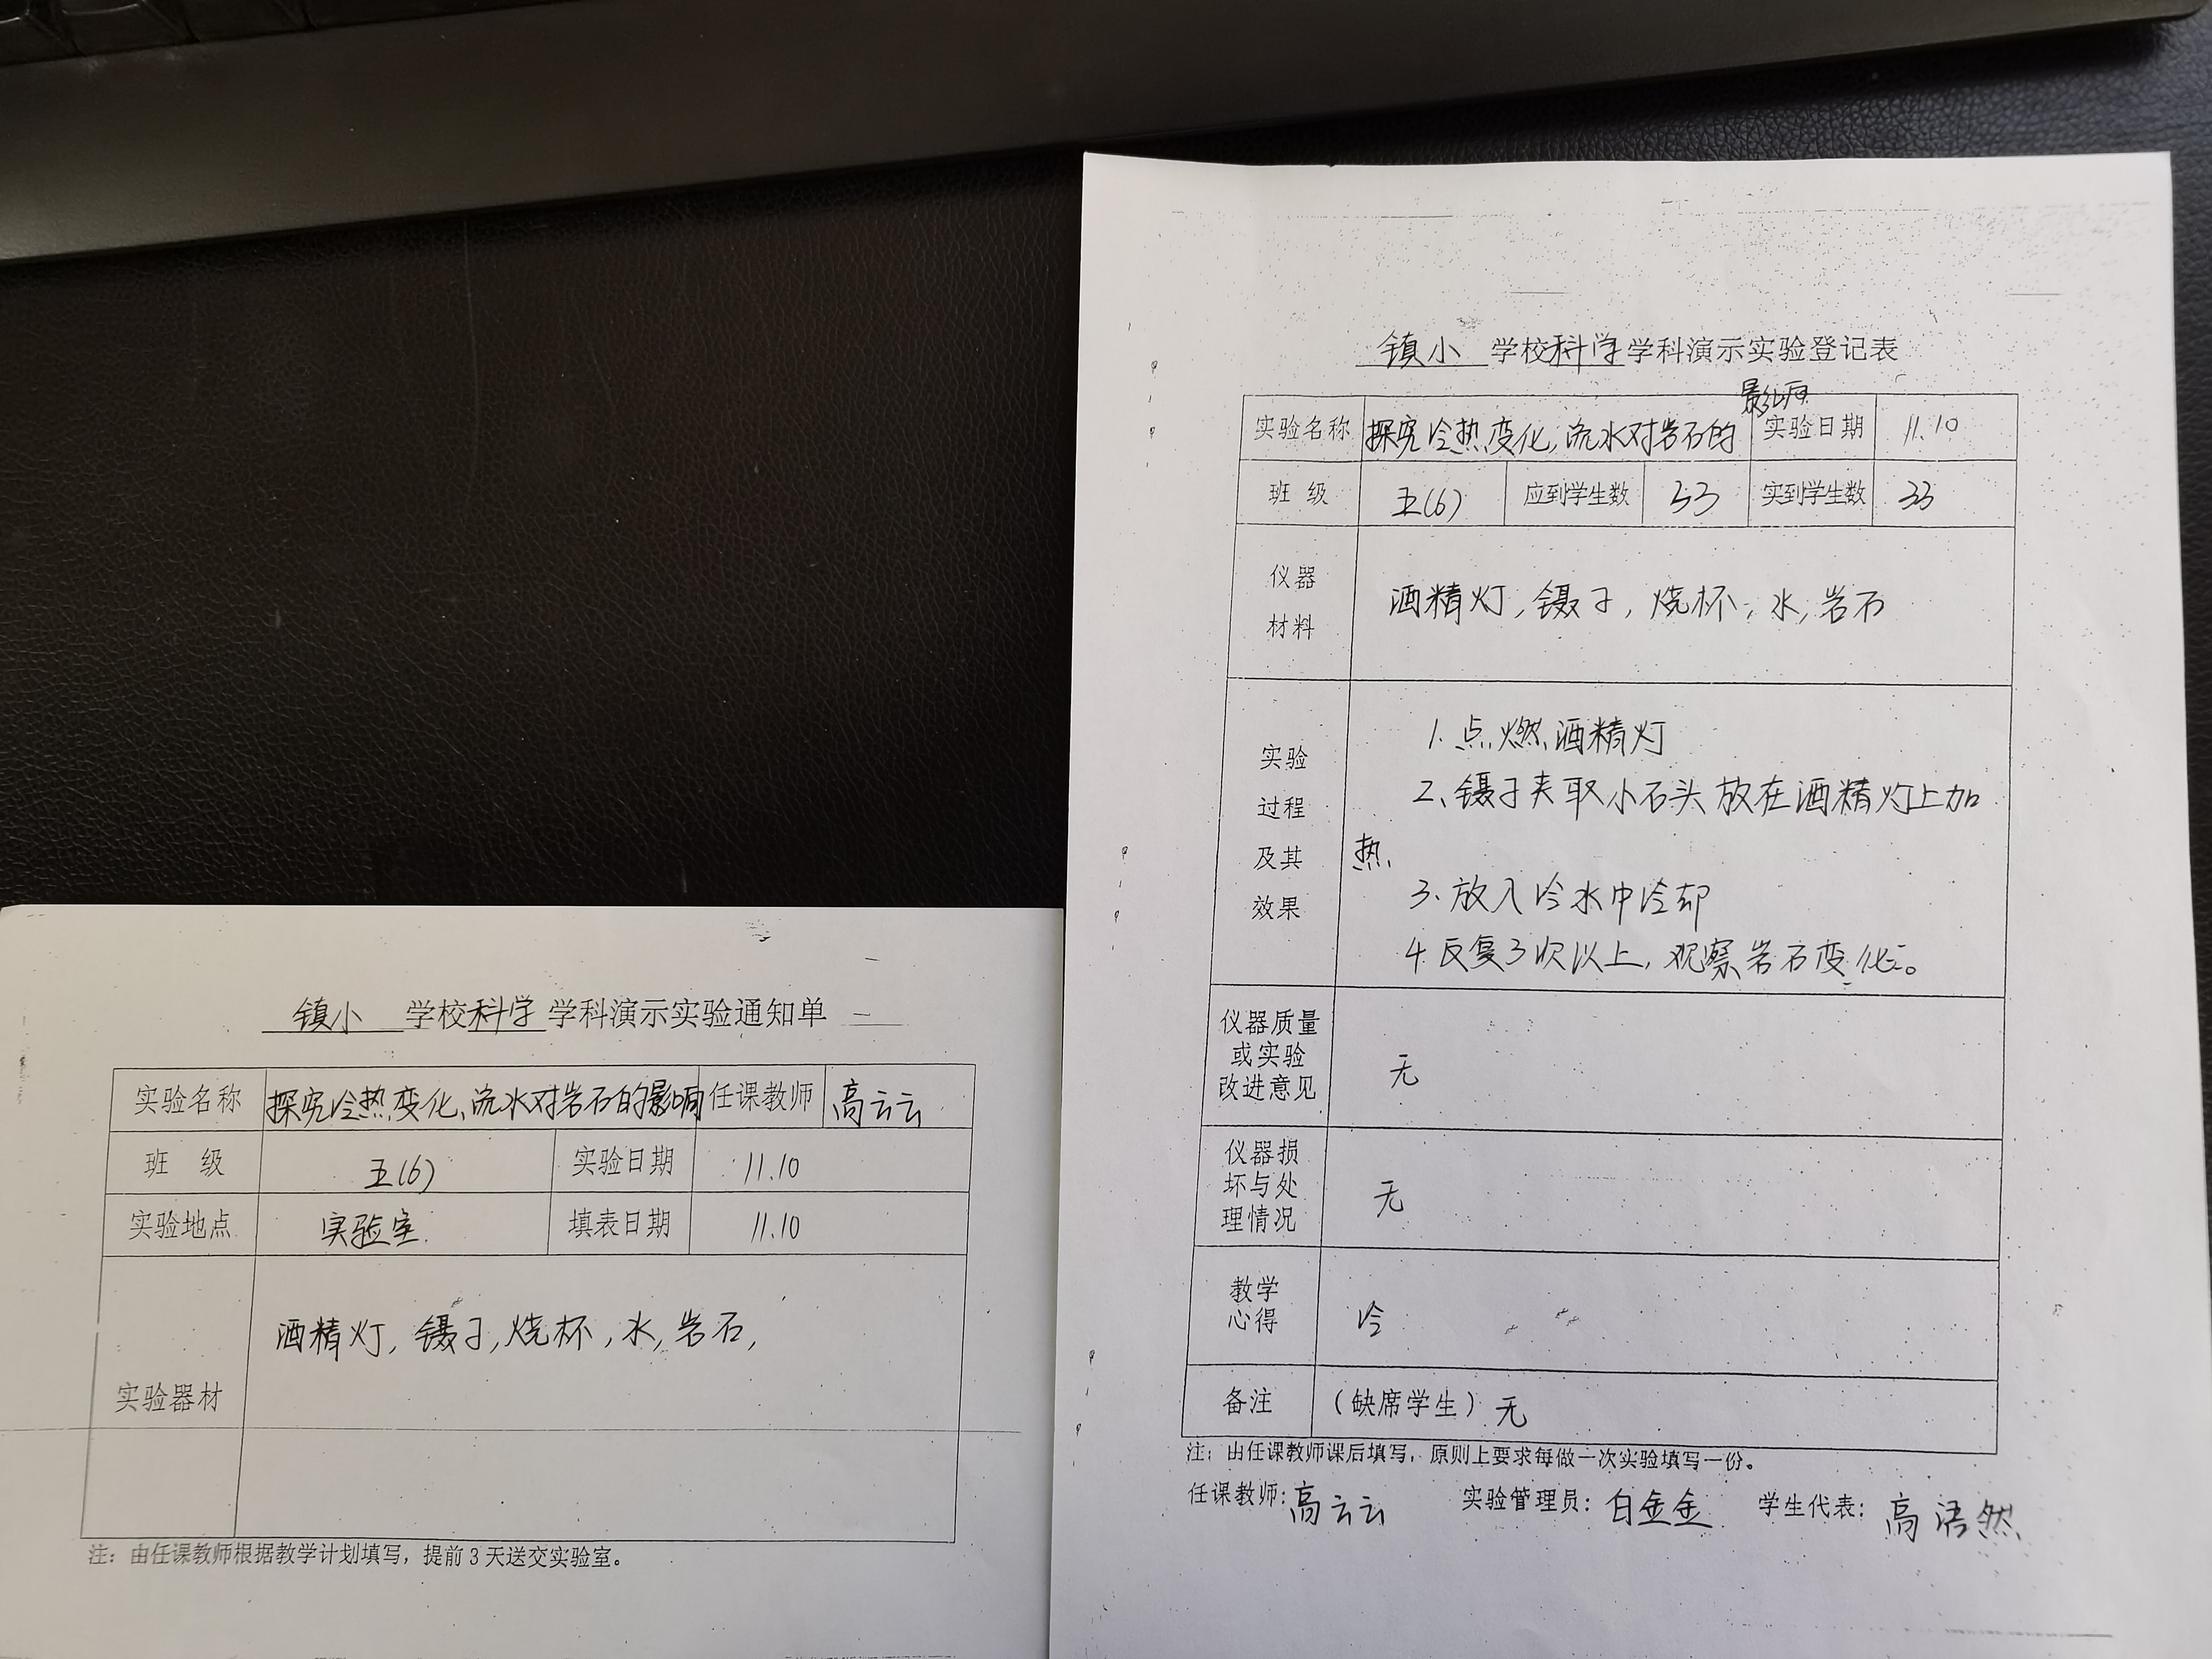 镇小 学校科学学科演示实验通知单
实验名称 探究冷热变化、流水对岩石的影响 任课教师 高云云
班 级 五(6) 实验日期 11.10
实验地点 实验室. 填表日期 11.10
实验器材 酒精灯, 镊子, 烧杯, 水, 岩石,
注：由任课教师根据教学计划填写，提前3天送交实验室。
镇小 学校科学学科演示实验登记表
实验名称 探究冷热变化, 流水对岩石的影响 实验日期 11.10
班 级 五(6) 应到学生数 53 实到学生数
仪器材料 酒精灯, 镊子, 烧杯, 水, 岩石
实验过程及其效果
1. 点燃酒精灯
2、镊子夹取小石头放在酒精灯上加
热.
3. 放入冷水中冷却
4. 反复3次以上, 观察岩石变化。
仪器质量或实验改进意见 无
仪器损坏与处理情况 无
教学心得 冷
备注 （缺席学生）无
注：由任课教师课后填写，原则上要求每做一次实验填写一份。
任课教师: 高云云 实验管理员: 白金金 学生代表: 高浯然